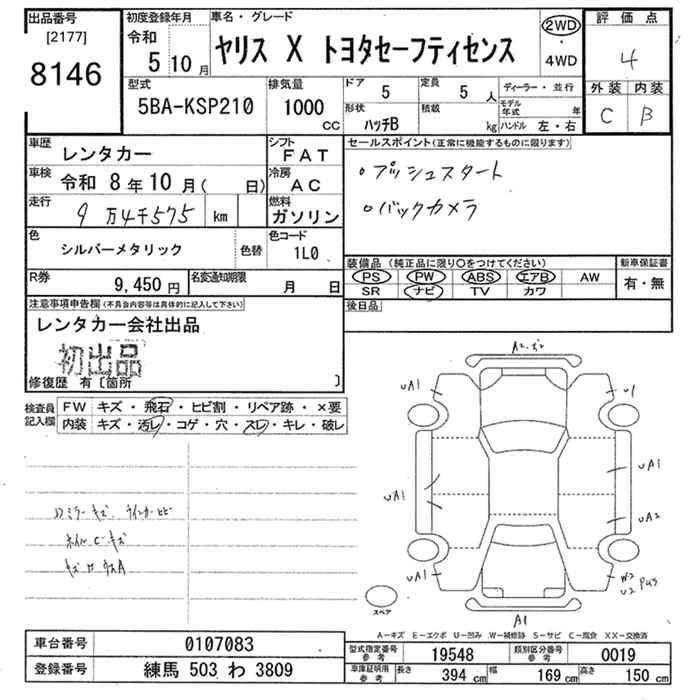 出品番号
[2177]
8146
初度登録年月
令和
5 10 月
車名・グレード
ヤリス X トヨタセーフティセンス
2WD
・
4WD
評価点
4
外装 内装
C B
型式
5BA-KSP210
排気量
1000 CC
ドア 5
定員 5 人
形状 ハッチB
積載 kg
ディーラー・並行
モデル年式 年
ハンドル 左・右
車歴 レンタカー
シフト FAT
車検 令和 8年10月( 日)
冷房 AC
走行 9万4千575 km
燃料 ガソリン
色 シルバーメタリック 色替
色コード 1L0
R券 9,450 円
名変通知期限 月 日
セールスポイント(正常に機能するものに限ります)
○プッシュスタート
○バックカメラ
装備品(純正品に限り○をつけてください)
新車保証書
PS PW ABS エアB AW
SR ナビ TV カワ
有・無
後日品
注意事項申告欄(不具合内容等は具体的に記入して下さい)
レンタカー会社出品
初出品
修復歴 有〔箇所 〕
検査員記入欄
FW キズ・飛石・ヒビ割・リペア跡・×要
内装 キズ・汚レ・コゲ・穴・スレ・キレ・破レ
ミラーキズ ウインカーヒビ
ホイルCキズ
uA1
u1
uA1
uA1
uA2
uA1
A1
スペア
A-キズ E-エクボ U-凹み W-補修跡 S-サビ C-腐食 XX-交換済
車台番号 0107083
登録番号 練馬 503 わ 3809
型式指定番号参考 19548
類別区分番号参考 0019
車庫証明用参考 長さ 394 cm 幅 169 cm 高さ 150 cm